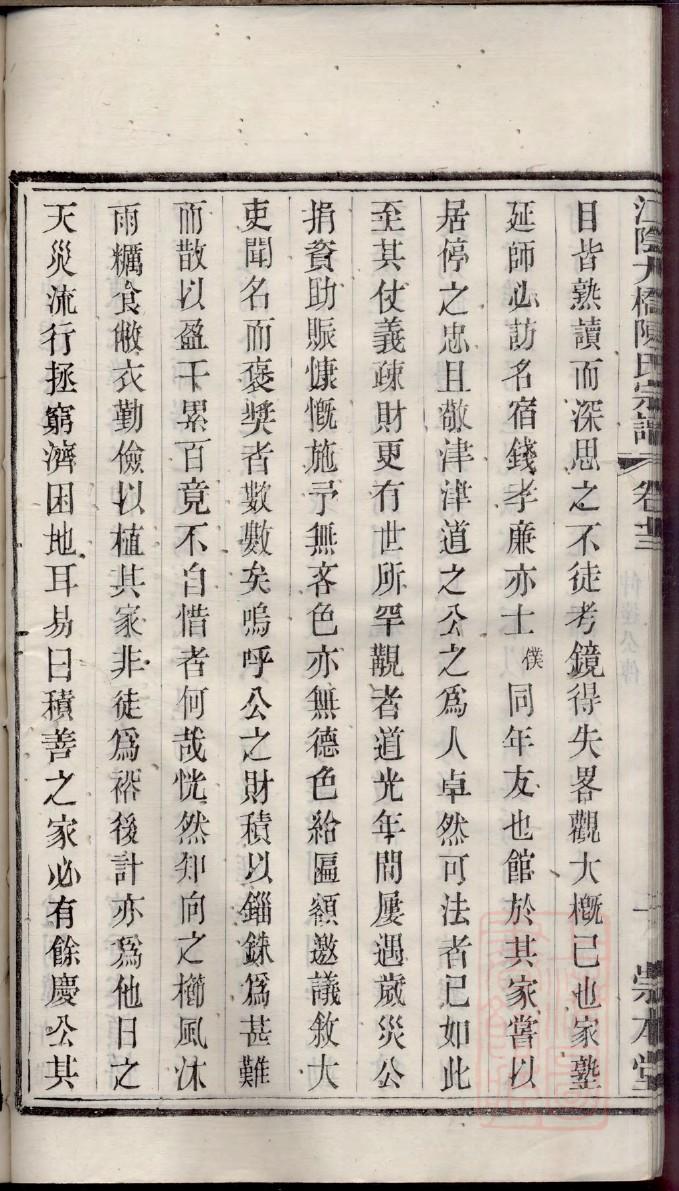 江陰九橋陳氏宗譜 卷廿三 一 崇本堂
目皆熟讀而深思之不徒考鏡得失畧觀大槪已也家塾
延師必訪名宿錢孝廉亦士僕同年友也館於其家嘗以
居停之忠且敬津津道之公之爲人卓然可法者已如此
至其仗義疎財更有世所罕觀者道光年間屢遇歲災公
捐資助賑慷慨施予無吝色亦無德色給匾額邀議敘大
吏聞名而褒獎者數數矣嗚呼公之財積以錙銖爲甚難
而散以盈千累百竟不自惜者何哉恍然知向之櫛風沐
雨糲食敝衣勤儉以植其家非徒爲裕後計亦爲他日之
天災流行拯窮濟困地耳易曰積善之家必有餘慶公其